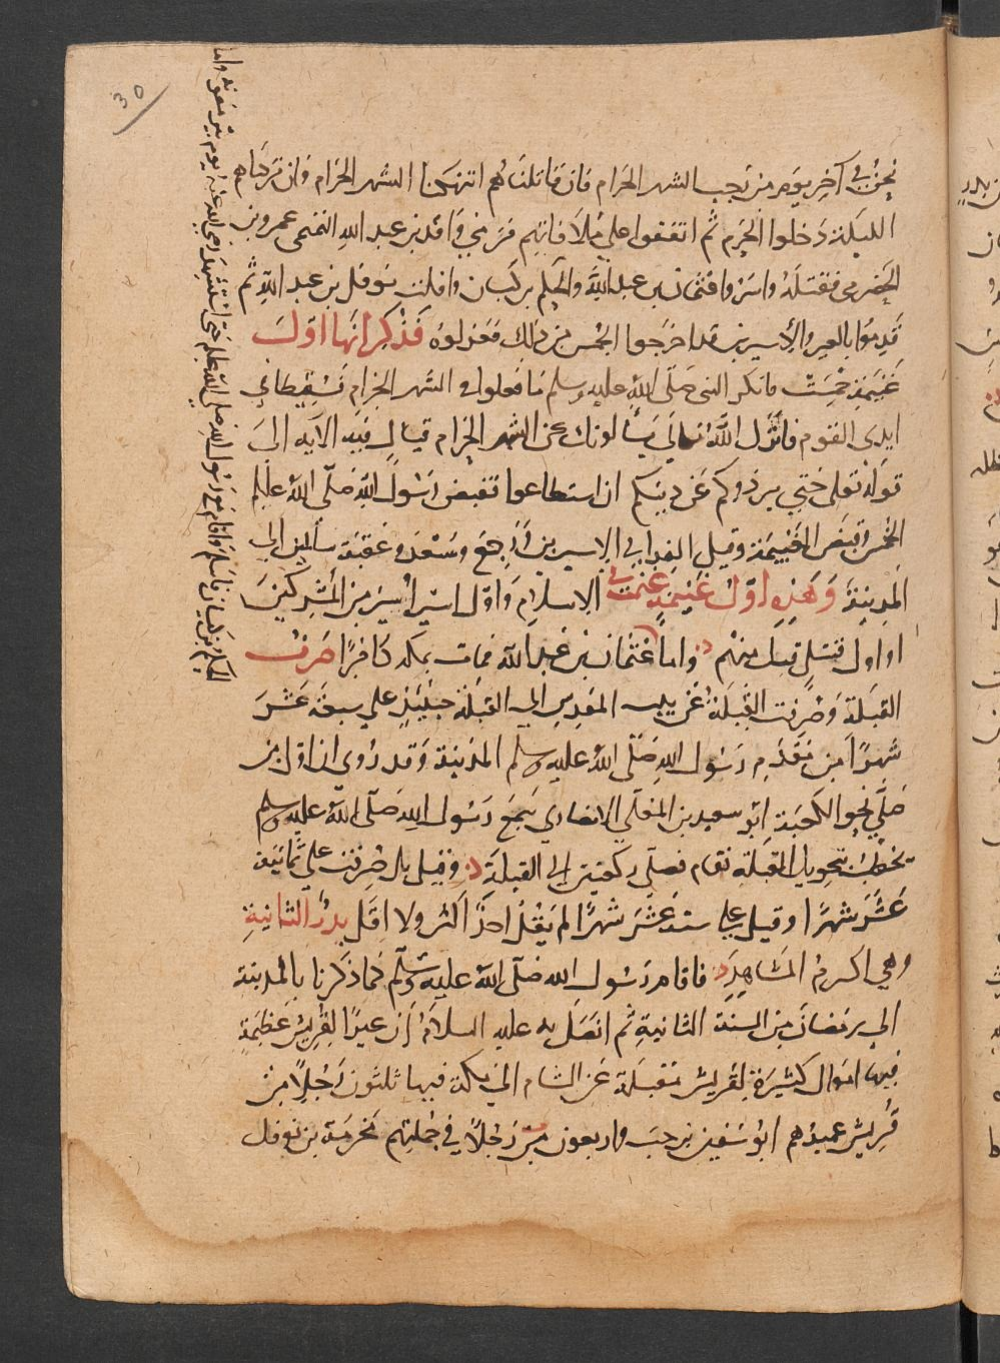 30
نحن في آخر يوم من رجب الشهر الحرام فان قاتلناهم انتهكنا الشهر الحرام وان تركناهم
الليلة دخلوا الحرم ثم اتفقوا على ملاقاتهم فرمي واقد بن عبد الله التميمي عمرو بن
الحضرمي فقتله واسروا عثمان بن عبد الله والحكم بن كيسان وافلت نوفل بن عبد الله ثم
قدموا بالعير والأسيرين قد اخرجوا الخمس من ذلك فعزلوه فذكر انها اول
غنيمة خمست فانكر النبي صلى الله عليه وسلم ما فعلوا في الشهر الحرام فسقط في
ايدي القوم فأنزل الله تعالى يسألونك عن الشهر الحرام قتال فيه الآيه الى
قوله تعلى حتى يردوكم عن دينكم ان استطاعوا فقبض رسول الله صلى الله عليه وسلم
الخمس وقبض الغنيمة وقبل الفدا في الاسيرين ورجع وسعد وعقبة سالمين الى
المدينة وهذه اول غنيمة غنمت في الاسلام واول اسير اسر من المشركين
او اول قتيل قتل منهم واما عثمان بن عبد الله فمات بمكه كافرا صرف
القبلة وصرفت القبلة عن بيت المقدس الى القبلة حينئذ على سبعة عشر
شهرا من مقدم رسول الله صلى الله عليه وسلم المدينة وقد روى ان اول من
صلى نحو الكعبة ابو سعيد بن المعلى الانصاري سمع رسول الله صلى الله عليه وسلم
يخطب بتحويل القبلة فقام فصلى ركعتين الى القبلة وقيل بل صرفت على ثمانية
عشر شهرا وقيل على ستة عشر شهرا لم يقل احد اكثر ولا اقل بدر الثانية
وهي اكرم المشاهد فاقام رسول الله صلى الله عليه وسلم كما ذكرنا بالمدينة
الى رمضان من السنة الثانية ثم اتصل به عليه السلام أن عيرا لقريش عظيمة
فيها اموال كثيرة لقريش مقبلة عن الشام الى مكة فيها ثلثون رجلا من
قريش عميدهم ابو سفين بن حرب واربعون من رجلا في جملتهم مخرمة بن نوفل
الحكم بن كيسان فاسلم واقام مع رسول الله صلى الله عليه وسلم حتى استشهد رضي الله عنه يوم بئر معونة واما